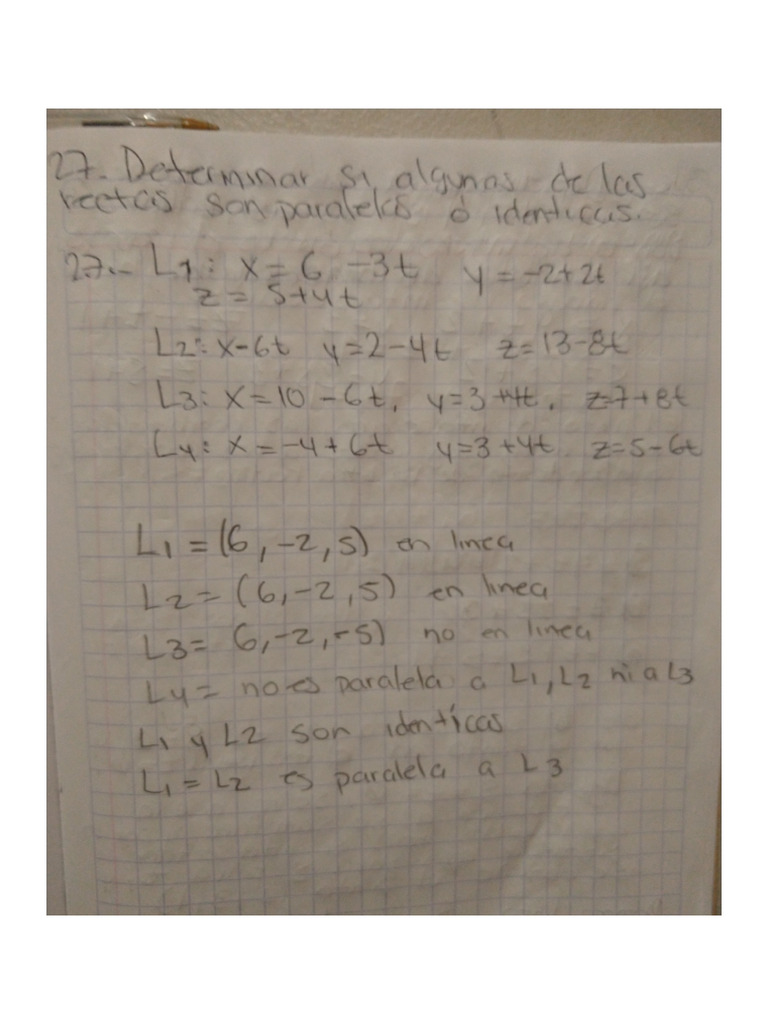 27.- Determinar si algunas de las
rectas son paralelas ó identicas.
27.- L1: x = 6 -3t y = -2+2t
z = 5+4t
L2: x-6t y=2-4t z=13-8t
L3: x=10-6t, y=3+4t, z=7+8t
L4: x=-4+6t y=3+4t z=5-6t
L1 = (6, -2, 5) en linea
L2 = (6, -2, 5) en linea
L3= 6, -2, -5) no en linea
L4= no es paralela a L1, L2 ni a L3
L1 y L2 son identícas
L1 = L2 es paralela a L3